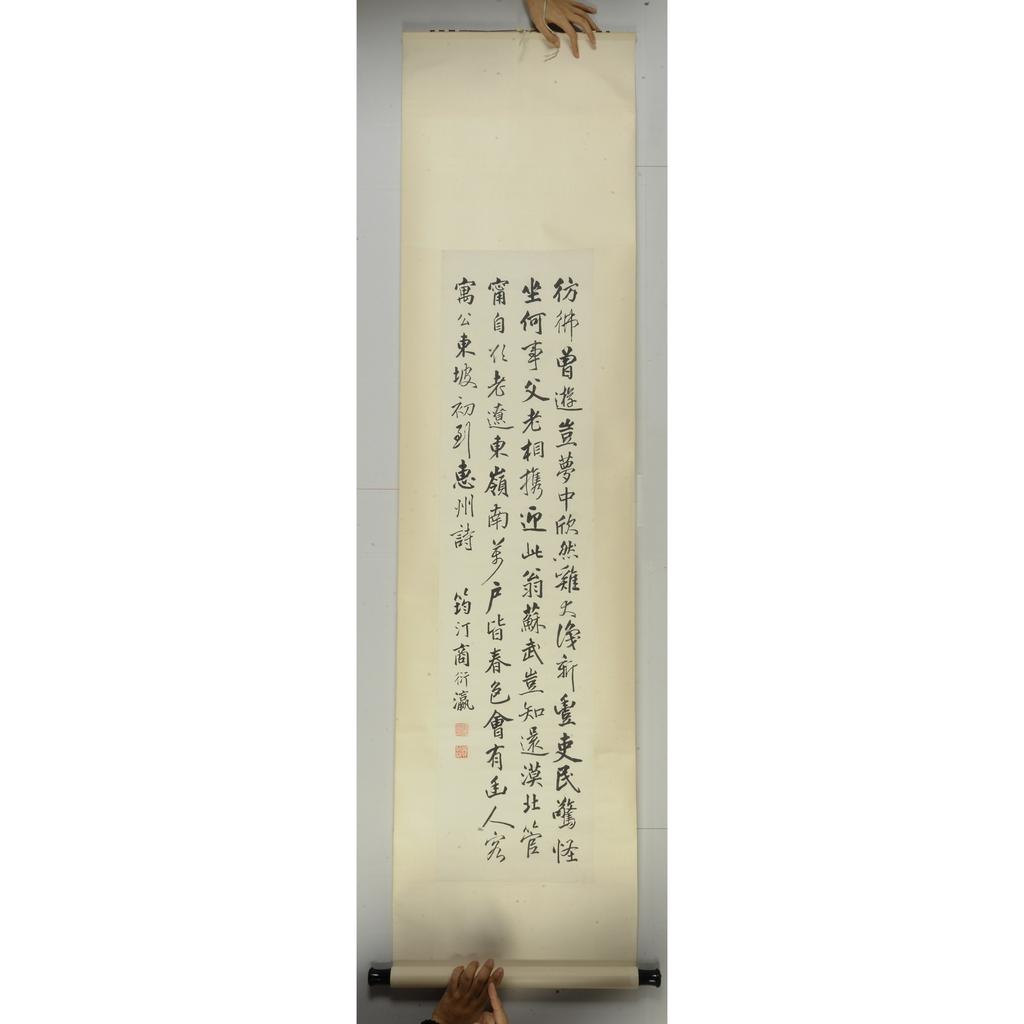 彷彿曾遊豈夢中欣然雞犬識新豐吏民驚怪
坐何事父老相携迎此翁蘇武豈知還漠北管
甯自欲老遼東嶺南萬戶皆春色會有幽人客
寓公東坡初到惠州詩 筠汀商衍瀛